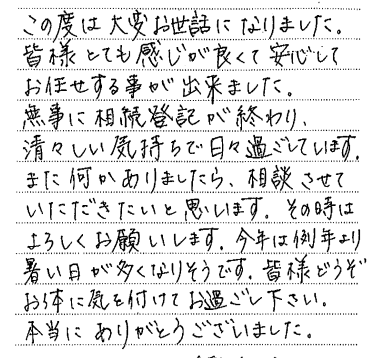 この度は大変お世話になりました。
皆様とても感じが良くて安心して
お任せする事が出来ました。
無事に相続登記が終わり、
清々しい気持ちで日々過ごしています。
また何かありましたら、相談させて
いただきたいと思います。その時は
よろしくお願いします。今年は例年より
暑い日が多くなりそうです。皆様どうぞ
お体に気を付けてお過ごし下さい。
本当にありがとうございました。